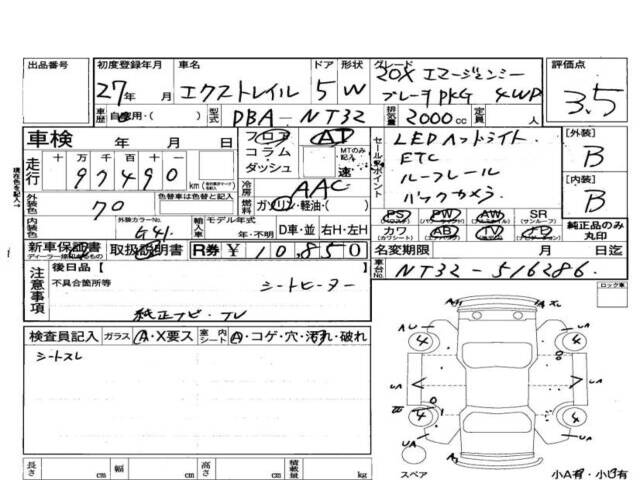 出品番号
初度登録年月
27年 月
車名
エクストレイル
ドア
5
形状
W
グレード
20X エマージェンシー
ブレーキPKG 4WD
評価点
3.5
車歴
自家用・( )
型式
DBA-NT32
排気量
2000 cc
定員
人
車検
年 月 日
フロア
コラム・
ダッシュ
AT
MTのみ記入
速
セールスポイント
LEDヘッドライト.
ETC
ルーフレール
バックカメラ.
[外装]
B
[内装]
B
現在色を記入→
走行
十 万 千 百 十 一
97490
km
冷房
AAC
外装色
70
色替車は色替と記入
燃料
ガソリン・軽油・( )
内装色
外装カラーNo.
G41.
輸入車
モデル年式
年・不明
D車・並
右H・左H
PS
PW
AW
SR
カワ
AB
TV
ナビ
純正品のみ
丸印
新車保証書
ディーラー捺印あるもの
取扱説明書
R券
¥10,850
名変期限
月 日迄
車台No.
NT32-516286.
注意事項
後日品[ ]
不具合箇所等
シートヒーター
純正ナビ・TV
ロック車
検査員記入
ガラス
A・X要ス
室内シート
A・コゲ・穴・汚れ・破れ
シートスレ
A
AU
4
4
4
4
UA
UA
UA
UA
スペア
小A有・小U有
長さ
cm
幅
cm
高さ
cm
積載量
kg